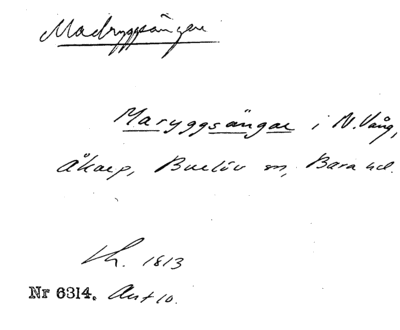 Madryggsängar
Maryggsängar i N. Vång,
Åkarp, Burlöv sn, Bara hd.
Lh. 1813
Nr 6314. Avt 10.